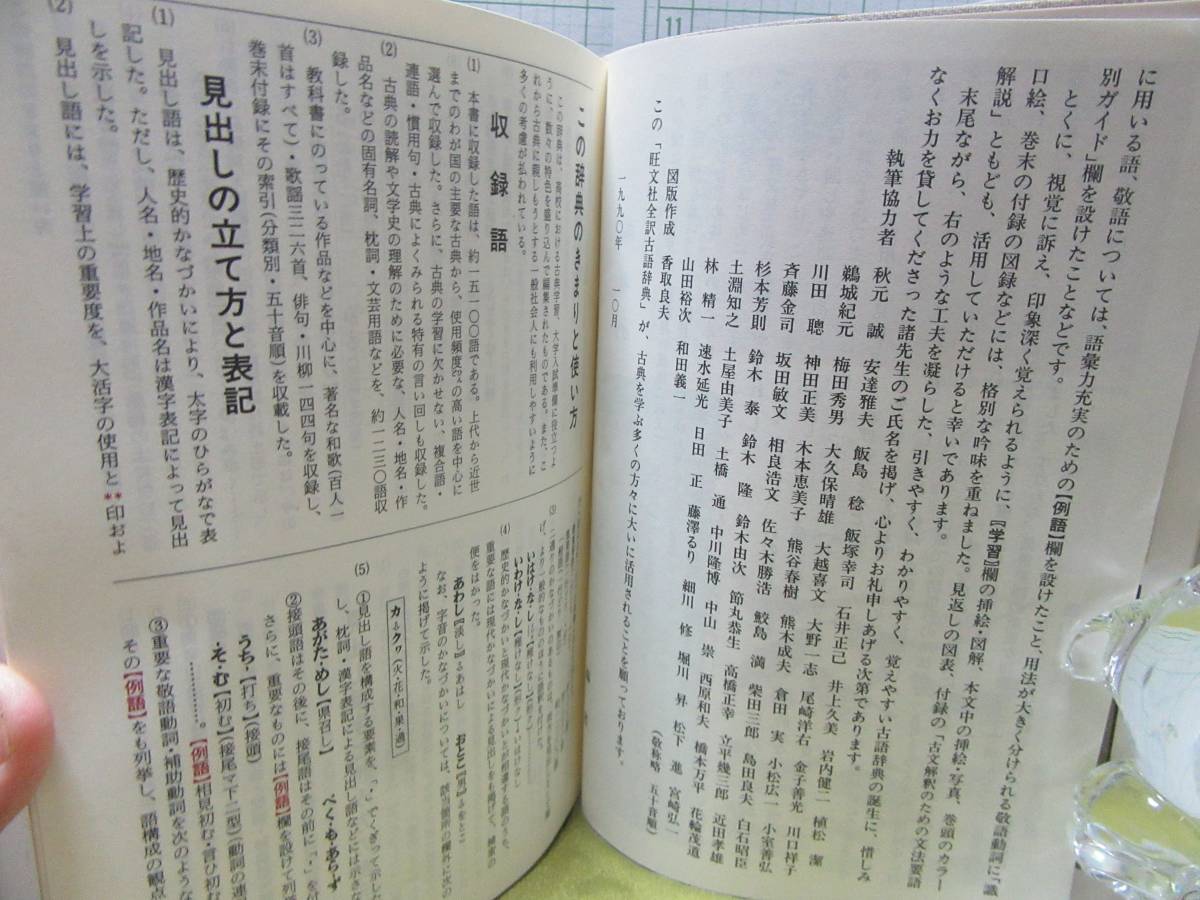 に用いる語、敬語については、語彙力充実のための【例語】欄を設けたこと、用法が大きく分けられる敬語動詞に「識
別ガイド」欄を設けたことなどです。
とくに、視覚に訴え、印象深く覚えられるように、『学習』欄の挿絵・図解、本文中の挿絵・写真、巻頭のカラー
口絵、巻末の付録の図録などには、格別な吟味を重ねました。見返しの図表、付録の「古文解釈のための文法要語
解説」ともども、活用していただけると幸いであります。
末尾ながら、右のような工夫を凝らした、引きやすく、わかりやすく、覚えやすい古語辞典の誕生に、惜しみ
なくお力を貸してくださった諸先生のご氏名を掲げ、心よりお礼申しあげる次第であります。
執筆協力者 秋元 誠 安達雅夫 飯島 稔 飯塚幸司 石井正己 井上久美 岩内健二 植松 潔
鵜城紀元 梅田秀男 大久保晴雄 大越喜文 大野一志 尾崎洋右 金子善光 川口祥子
川田 聰 神田正美 木本恵美子 熊谷春樹 熊木成夫 倉田 実 小松広一 小室善弘
斉藤金司 坂田敏文 相良浩文 佐々木勝浩 鮫島 満 柴田三郎 島田良夫 白石昭臣
杉本芳則 鈴木 泰 鈴木 隆 鈴木由次 節丸恭生 高橋正幸 立平幾三郎 近田孝雄
土淵知之 土屋由美子 土橋 通 中川隆博 中山 崇 西原和夫 橋本万平 花輪茂道
林 精一 速水延光 日田 正 藤澤るり 細川 修 堀川 昇 松下 進 宮崎弘一
山田裕次 和田義一 (敬称略 五十音順)
図版作成 香取良夫
この「旺文社全訳古語辞典」が、古典を学ぶ多くの方々に大いに活用されることを願っております。
一九九〇年 一〇月
この辞典のきまりと使い方
この辞典は、高校における古典学習、大学入試準備に役立つよ
うに、数々の特色を盛り込んで編集されたものである。また、こ
れから古典に親しもうとする一般社会人にも利用しやすいように
多くの考慮が払われている。
収録語
(1) 本書に収録した語は、約一五一〇〇語である。上代から近世
までのわが国の主要な古典から、使用頻度の高い語を中心に
選んで収録した。さらに、古典の学習に欠かせない、複合語・
連語・慣用句・古典によくみられる特有の言い回しも収録した。
(2) 古典の読解や文学史の理解のために必要な、人名・地名・作
品名などの固有名詞、枕詞・文芸用語などを、約一二三〇語収
録した。
(3) 教科書にのっている作品などを中心に、著名な和歌(百人一
首はすべて)・歌謡三二六首、俳句・川柳一四四句を収録し、
巻末付録にその索引(分類別・五十音順)を収載した。
見出しの立て方と表記
(1) 見出し語は、歴史的かなづかいにより、太字のひらがなで表
記した。ただし、人名・地名・作品名は漢字表記によって見出
しを示した。
(2) 見出し語には、学習上の重要度を、大活字の使用と**印およ
(4) 歴史的かなづかいと現代かなづかいとが相違する語のうち、
重要な語には現代かなづかいによる見出しをも掲げて、検索の
便をはかった。
あわし『淡し』➡あはし おとこ『男』➡をとこ
なお、字音のかなづかいについては、該当箇所の欄外に次の
ように掲げて示した。
カ➡クヮ(火・花・和・果・過)
(5) ①見出し語を構成する要素を、「・」でくぎって示した
し、枕詞・漢字表記による見出し語などには示さな
あがた・めし【県召し】 べく・も・あらず
②接頭語はその後に、接尾語はその前に「・」を付
さらに、重要なものには【例語】欄を設けて列
うち・【打ち】(接頭)
・そ・む【初む】(接尾マ下二型)(動詞の連
………。【例語】相見初む・言ひ初む
③重要な敬語動詞・補助動詞を次のような
その【例語】をも列挙し、語構成の観点